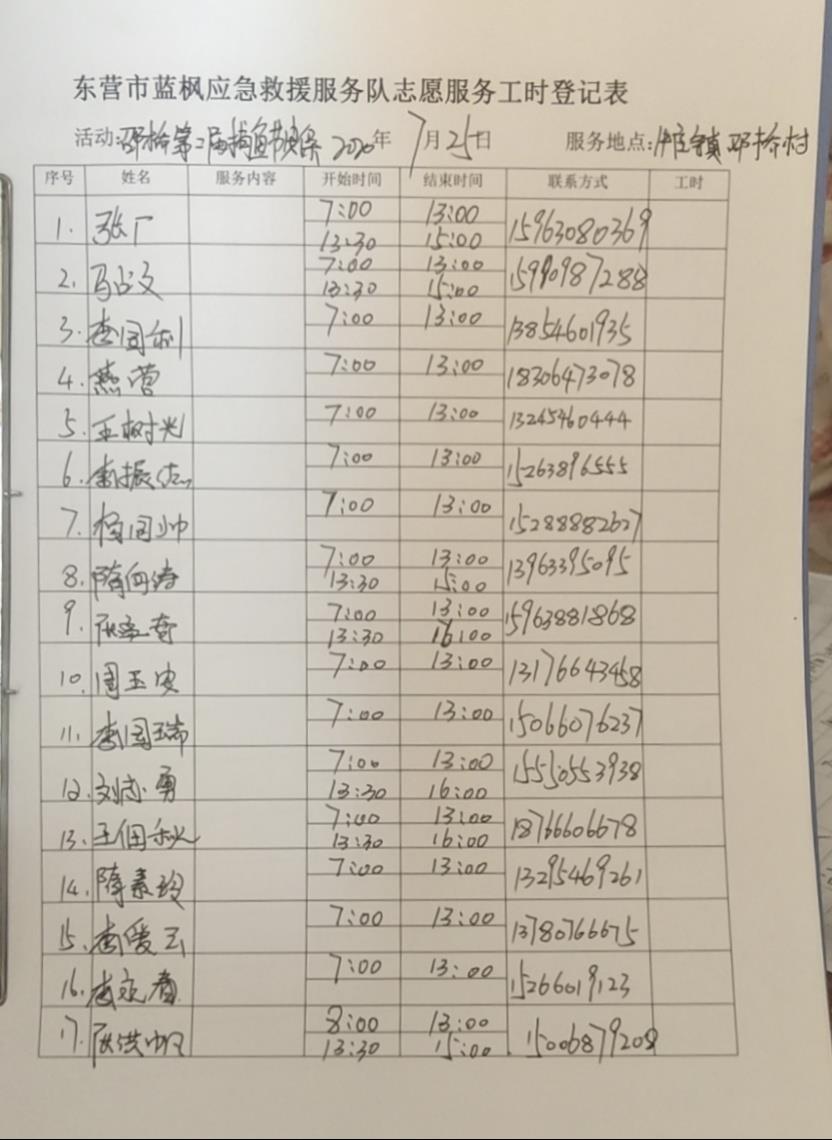 东营市蓝枫应急救援服务队志愿服务工时登记表
活动: 第二届捕鱼节 2020年 7月25日 服务地点: 镇 村
序号 姓名 服务内容 开始时间 结束时间 联系方式 工时
1. 张广 7:00 13:00 15963080369
13:30 15:00
2. 马占文 7:00 13:00 15990987288
13:30 15:00
3. 李国利 7:00 13:00 13854601935
4. 燕营 7:00 13:00 18306473078
5. 王树光 7:00 13:00 13245460444
6. 李振 7:00 13:00 15263896555
7. 杨国帅 7:00 13:00 15288882627
8. 隋向涛 7:00 13:00 13963395095
13:30 15:00
9. 7:00 13:00 15963881868
13:30 16:00
10. 周玉安 7:00 13:00 13176643458
11. 李国瑞 7:00 13:00 15066076237
12. 刘志勇 7:00 13:00 15550553938
13:30 16:00
13. 王佃秋 7:00 13:00 18766606678
13:30 16:00
14. 隋素玲 7:00 13:00 13295469261
15. 李爱云 7:00 13:00 13780766675
16. 7:00 13:00 15266019123
17. 8:00 13:00 15006879208
13:30 15:00